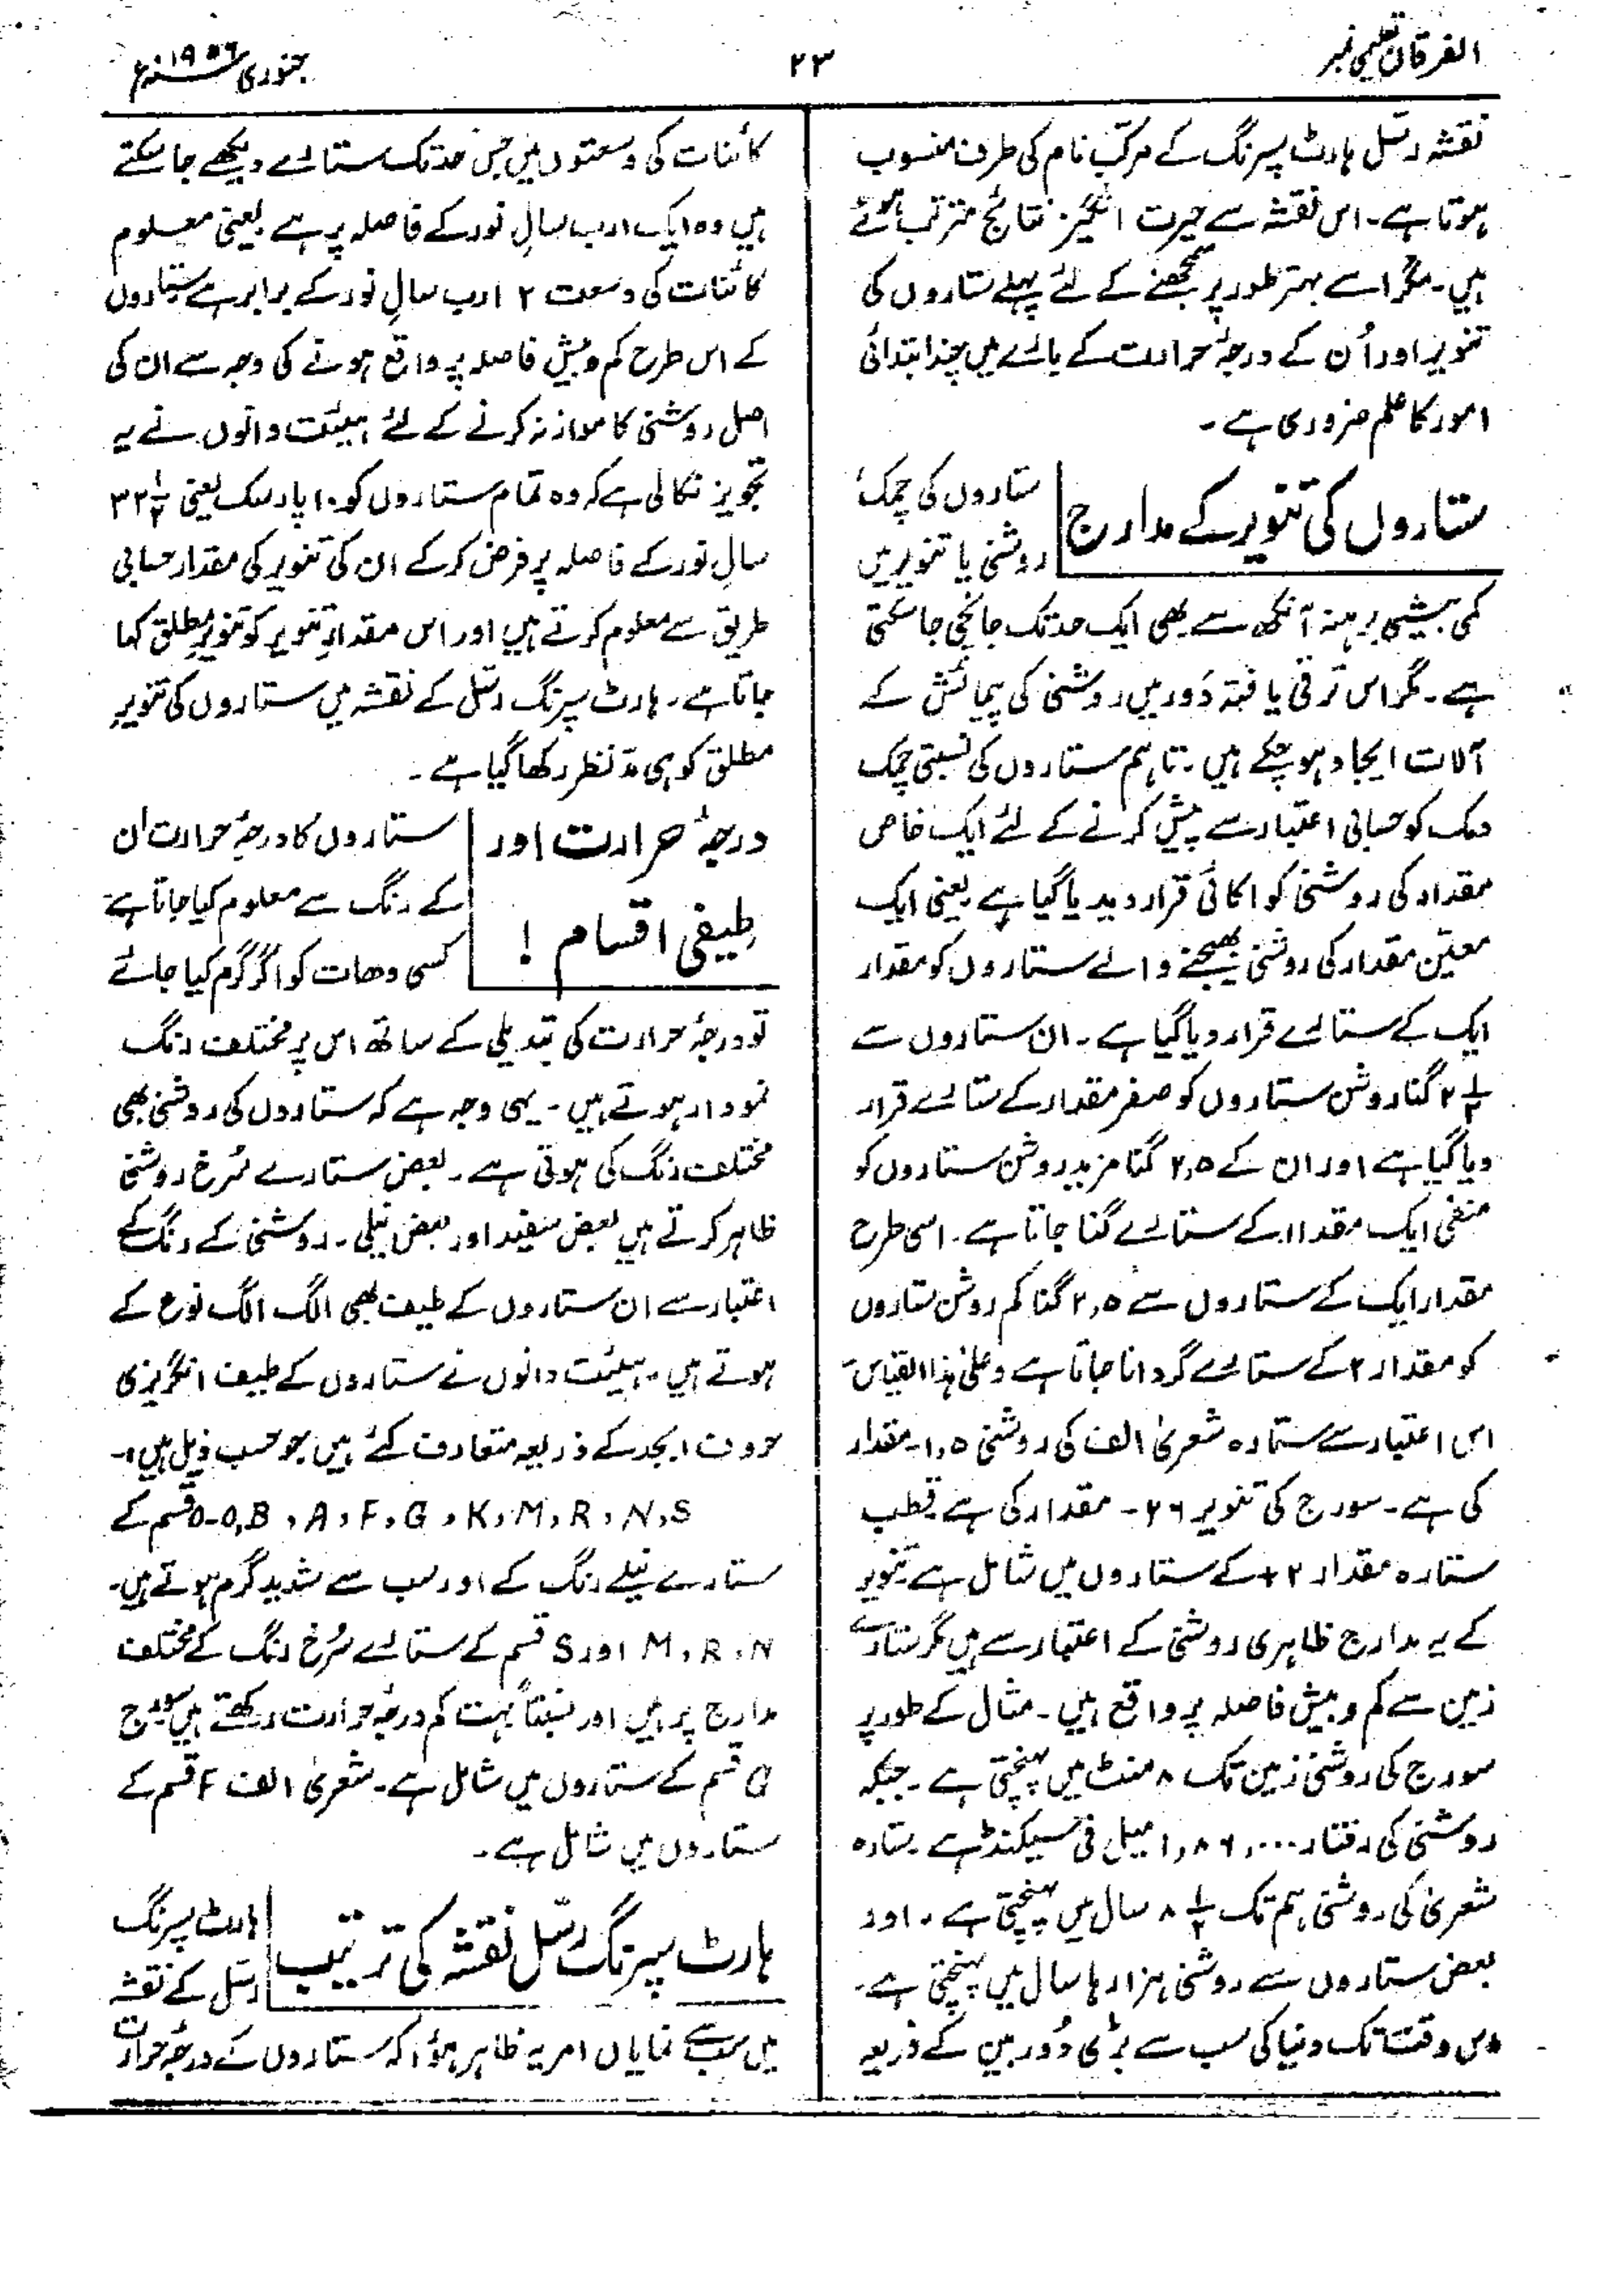 الفرقان تعلیمی نمبر
۲۳
جنوری ۱۹۵۶ء
نقشہ رسّل ہارٹ سپرنگ کے مرکب نام کی طرف منسوب
ہوتا ہے۔ اس نقشہ سے حیرت انگیز نتائج مترتب ہوئے
ہیں۔ مگر اسے بہتر طور پر سمجھنے کے لئے پہلے ستاروں کی
تنویر اور اُن کے درجۂ حرارت کے بارے میں چند ابتدائی
امور کا علم ضروری ہے۔
ستاروں کی تنویر کے مدارج
ستاروں کی چمک،
روشنی یا تنویر میں
کمی بیشی برہنہ آنکھ سے بھی ایک حد تک جانچی جا سکتی
ہے۔ مگر اس ترقی یافتہ دَور میں روشنی کی پیمائش کے
آلات ایجاد ہو چکے ہیں۔ تاہم ستاروں کی نسبتی چمک
دمک کو حسابی اعتبار سے پیش کرنے کے لئے ایک خاص
مقدار کی روشنی کو اکائی قرار دیدیا گیا ہے یعنی ایک
معیّن مقدار کی روشنی بھیجنے والے ستاروں کو مقدار
ایک کے ستارے قرار دیا گیا ہے۔ ان ستاروں سے
۲½ گنا روشن ستاروں کو صفر مقدار کے ستارے قرار
دیا گیا ہے اور ان کے ۲٫۵ گنا مزید روشن ستاروں کو
منفی ایک مقدار کے ستارے گنا جاتا ہے۔ اسی طرح
مقدار ایک کے ستاروں سے ۲٫۵ گنا کم روشن ستاروں
کو مقدار ۲ کے ستارے گردانا جاتا ہے وعلیٰ ہذا القیاس۔
اس اعتبار سے ستارہ شعریٰ الف کی روشنی ۱٫۵- مقدار
کی ہے۔ سورج کی تنویر ۲۶- مقدار کی ہے قطب
ستارہ مقدار ۲+ کے ستاروں میں شامل ہے تنویر
کے یہ مدارج ظاہری روشنی کے اعتبار سے ہیں مگر ستارے
زمین سے کم و بیش فاصلہ پر واقع ہیں۔ مثال کے طور پر
سورج کی روشنی زمین تک ۸ منٹ میں پہنچتی ہے۔ جبکہ
روشنی کی رفتار ۱٫۸۶٫۰۰۰ میل فی سیکنڈ ہے ستارہ
شعریٰ کی روشنی ہم تک ۸½ سال میں پہنچتی ہے۔ اور
بعض ستاروں سے روشنی ہزارہا سال میں پہنچتی ہے۔
اس وقت تک دنیا کی سب سے بڑی دُور بین کے ذریعہ
کائنات کی وسعتوں میں جس حد تک ستارے دیکھے جا سکتے
ہیں وہ ایک ارب سالِ نور کے فاصلہ پر ہے یعنی معلوم
کائنات کی وسعت ۲ ارب سالِ نور کے برابر ہے ستاروں
کے اس طرح کم و بیش فاصلہ پر واقع ہونے کی وجہ سے ان کی
اصل روشنی کا موازنہ کرنے کے لئے ہیئت دانوں نے یہ
تجویز نکالی ہے کہ وہ تمام ستاروں کو ۱۰ پارسک یعنی ۳۲½
سالِ نور کے فاصلہ پر فرض کر کے ان کی تنویر کی مقدار حسابی
طریق سے معلوم کرتے ہیں اور اس مقدارِ تنویر کو تنویرِ مطلق کہا
جاتا ہے۔ ہارٹ سپرنگ رسّل کے نقشہ میں ستاروں کی تنویرِ
مطلق کو ہی مدّنظر رکھا گیا ہے۔
درجۂ حرارت اور
طیفی اقسام !
ستاروں کا درجۂ حرارت ان
کے رنگ سے معلوم کیا جاتا ہے
کسی دھات کو اگر گرم کیا جائے
تو درجۂ حرارت کی تبدیلی کے ساتھ اس پر مختلف رنگ
نمودار ہوتے ہیں۔ یہی وجہ ہے کہ ستاروں کی روشنی بھی
مختلف رنگ کی ہوتی ہے۔ بعض ستارے سُرخ روشنی
ظاہر کرتے ہیں بعض سفید اور بعض نیلی۔ روشنی کے رنگ کے
اعتبار سے ان ستاروں کے طیف بھی الگ الگ نوع کے
ہوتے ہیں۔ ہیئت دانوں نے ستاروں کے طیف انگریزی
حروف ابجد کے ذریعہ متعارف کئے ہیں جو حسب ذیل ہیں:-
O-O,B , A , F , G , K , M , R , N , S قسم کے
ستارے نیلے رنگ کے اور سب سے شدید گرم ہوتے ہیں۔
M , R , N اور S قسم کے ستارے سُرخ رنگ کے مختلف
مدارج پر ہیں اور نسبتاً بہت کم درجۂ حرارت رکھتے ہیں سورج
G قسم کے ستاروں میں شامل ہے۔ شعریٰ الف F قسم کے
ستاروں میں شامل ہے۔
ہارٹ سپرنگ رسّل نقشہ کی ترتیب
ہارٹ سپرنگ
رسّل کے نقشہ
میں سب سے نمایاں امر یہ ظاہر ہؤا کہ ستاروں کے درجۂ حرارت